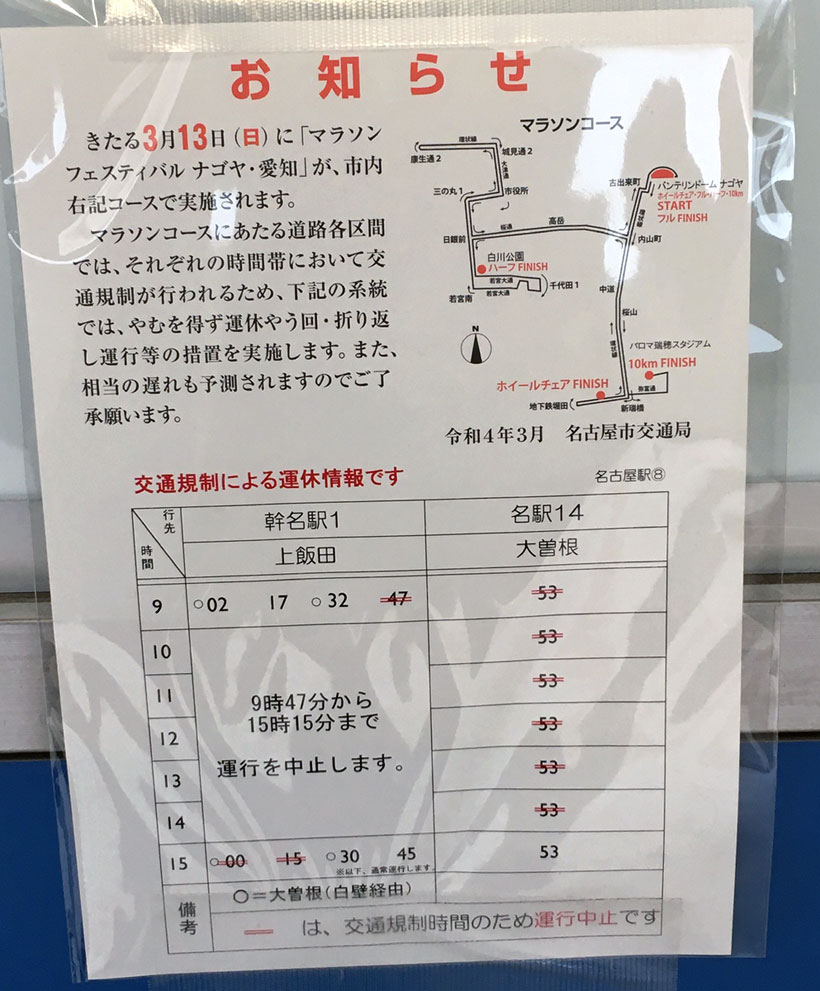 お知らせ
きたる3月13日(日)に「マラソン
フェスティバル ナゴヤ・愛知」が、市内
右記コースで実施されます。
マラソンコースにあたる道路各区間
では、それぞれの時間帯において交
通規制が行われるため、下記の系統
では、やむを得ず運休やう回・折り返
し運行等の措置を実施します。また、
相当の遅れも予測されますのでご了
承願います。
マラソンコース
環状線
康生通2
城見通2
大津通
三の丸1
市役所
古出来町
バンテリンドーム ナゴヤ
ホイールチェア・フル・ハーフ・10km
START
フル FINISH
環状線
日銀前
桜通
高岳
内山町
白川公園
ハーフ FINISH
若宮大通
若宮大通
千代田1
若宮南
中道
桜山
N
環状線
パロマ瑞穂スタジアム
10km FINISH
弥富通
ホイールチェア FINISH
地下鉄堀田
新瑞橋
令和4年3月 名古屋市交通局
交通規制による運休情報です
名古屋駅⑧
行先
時間
幹名駅1
名駅14
上飯田
大曽根
9 ○02 17 ○32 47 53
10 53
11 53
12 53
13 53
14 53
9時47分から
15時15分まで
運行を中止します。
15 ○00 15 ○30 45 53
※以下、通常運行します。
備考
○=大曽根(白壁経由)
は、交通規制時間のため運行中止です